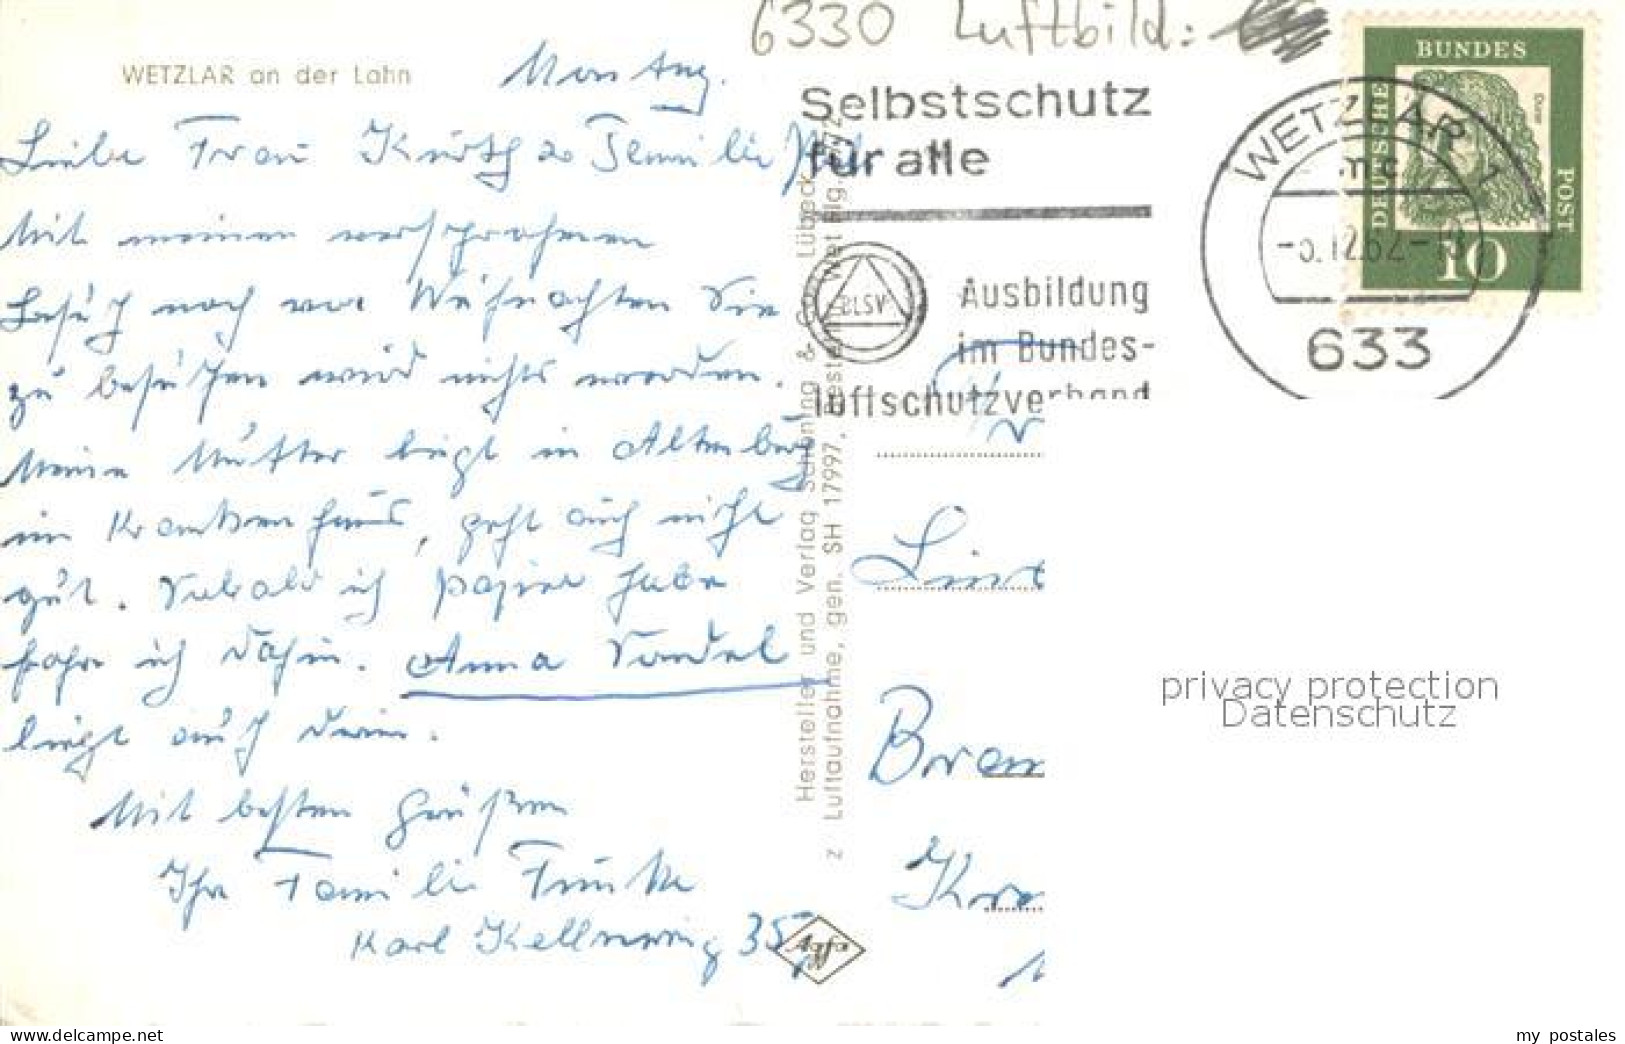 6330 Luftbild:
WETZLAR an der Lahn
Montag.
Liebe Frau Kürth u Familie
Mit meinen versprochenen
Besuch noch vor Weihnachten Sie
zu besuchen wird nichts werden.
Meine Mutter liegt in Altenberg
im Krankenhaus, geht auch nicht
gut. Sobald ich Papier habe
fahre ich dahin. Anna
liegt auch darin.
Mit besten Grüßen
Ihre Familie Funke
Karl Kellnerring 35
Hersteller und Verlag Schöning & Co., Lübeck
Luftaufnahme, gen. SH 17997,
z
Agfa
Selbstschutz
für alle
BLSV
Ausbildung
im Bundes-
luftschutzverband
WETZLAR 1
12.62
633
DEUTSCHE
BUNDES
POST
Dürer
10
privacy protection
Datenschutz
www.delcampe.net
my postales